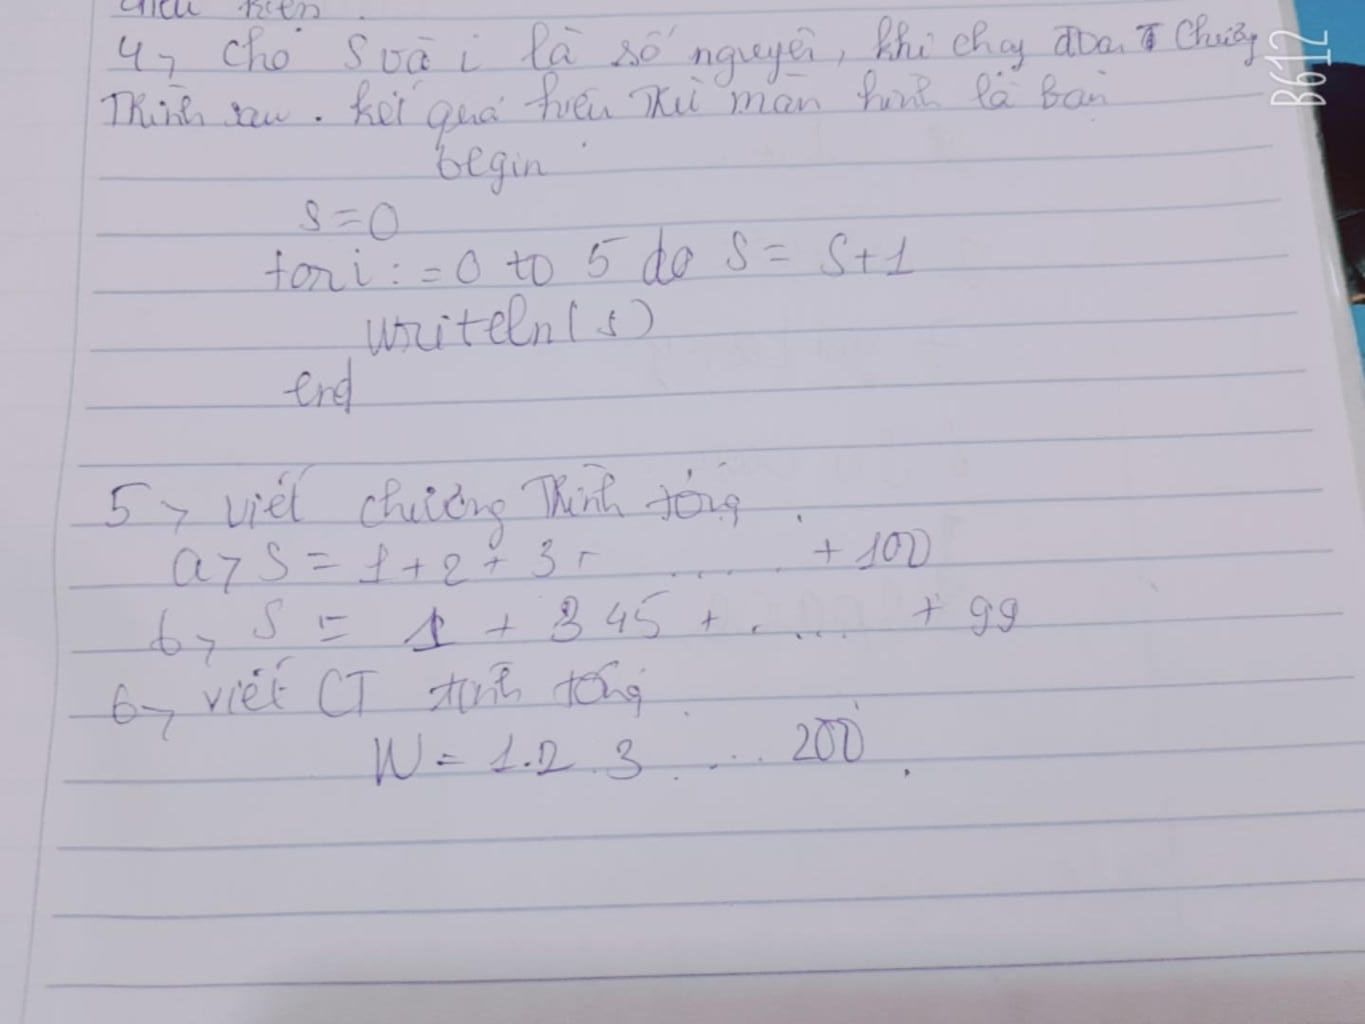 điều kiện.
4, cho S và i là số nguyên, khi chạy đoạn chương
Trình sau. kết quả hiển thị màn hình là bao
begin
S=0
for i:=0 to 5 do S= S+1
writeln(s)
end
5, viết chương Trình tổng
a, S = 1+2+3+ ........ +100
b, S = 1 + 3 45 + ..... + 99
6, viết CT tính tổng
W = 1.2.3 ..... 200.
B612